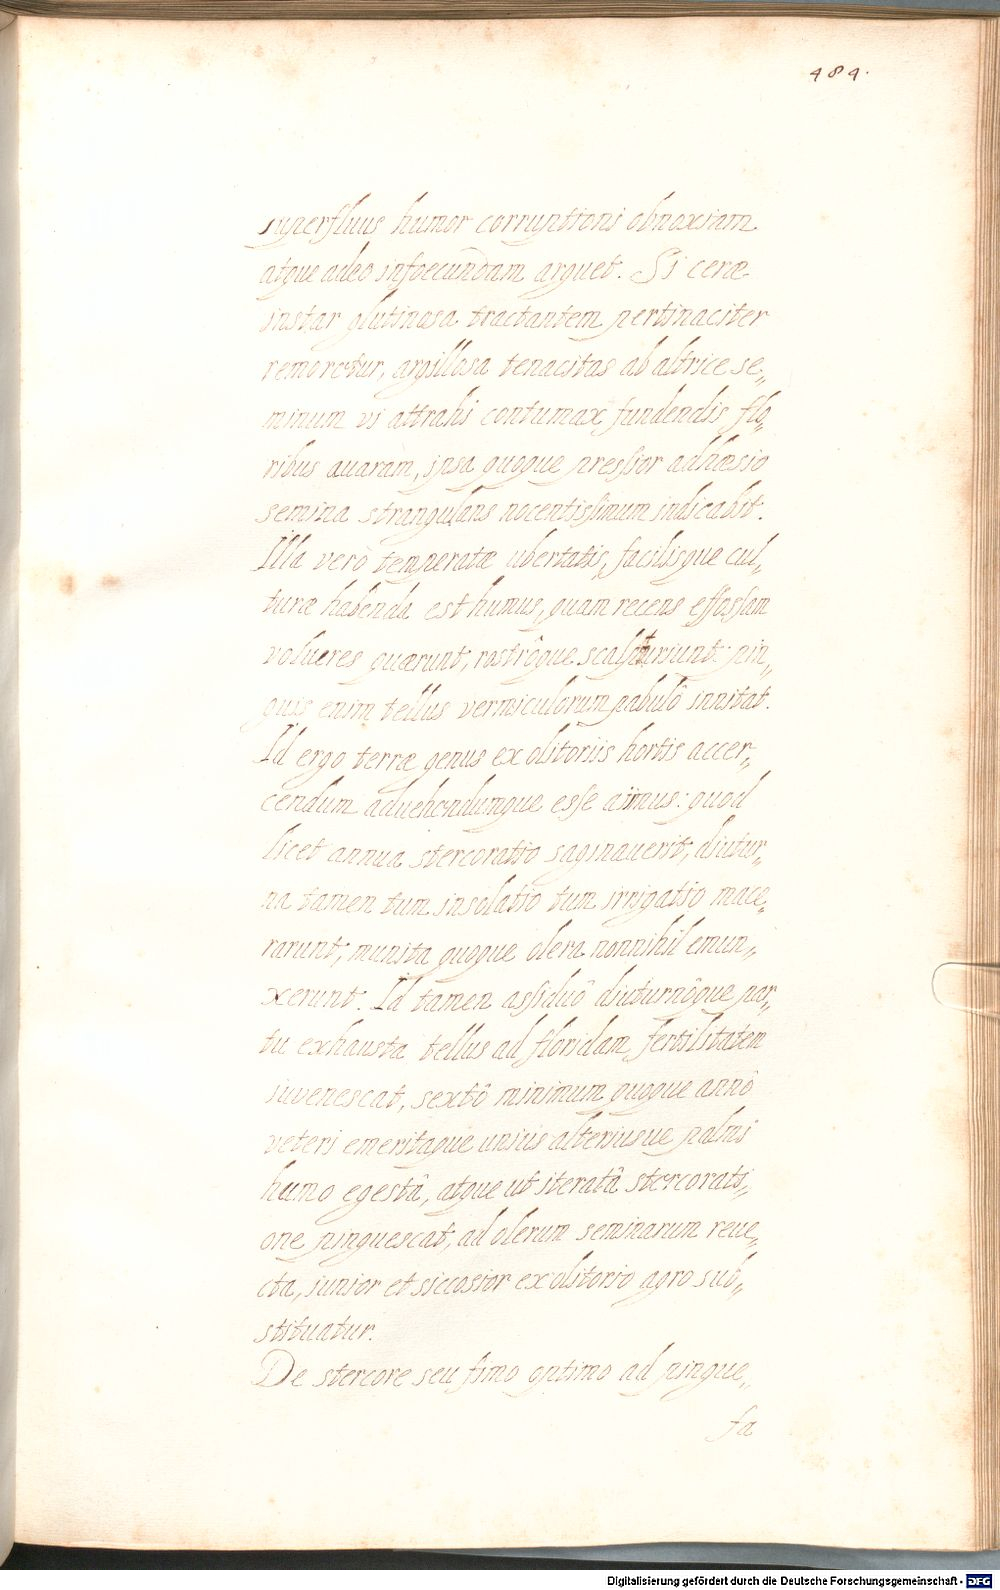 484.
superfluus humor corruptioni obnoxiam
atque adeo infoecundam arguet. Si ceræ
instar glutinosa tractantem pertinaciter
remoretur, argillosa tenacitas ab altrice se„
minum vi attrahi contumax fundendis flo„
ribus auaram, ipsa quoque pressior adhæsio
semina strangulans nocentissimum indicabit.
Illa verò temperatæ ubertatis, facilisque cul„
turæ habenda est humus, quam recens effossam
volucres quærunt, rostrôque scalpturiunt: pin„
guis enim tellus vermiculorum pabulô inuitat.
Id ergo terræ genus ex olitoriis hortis accer„
cendum aduehendumque esse aimus: quod
licet annua stercoratio saginauerit, diutur„
na tamen tum insolatio tum irrigatio mace„
rarunt; munita quoque olera nonnihil emun„
xerunt. Id tamen assiduô diuturnôque par„
tu exhausta tellus ad floridam fertilitatem
iuvenescat, sextô minimum quoque annô
veteri emeritaque unius alteriusue palmi
humo egestâ, atque ut iteratâ stercorati„
one pinguescat, ad olerum seminarum reue„
cta, iunior et siccosior ex olitorio agro sub„
stituatur.
De stercore seu fimo optimo ad pingue„
fa
Digitalisierung gefördert durch die Deutsche Forschungsgemeinschaft - DFG